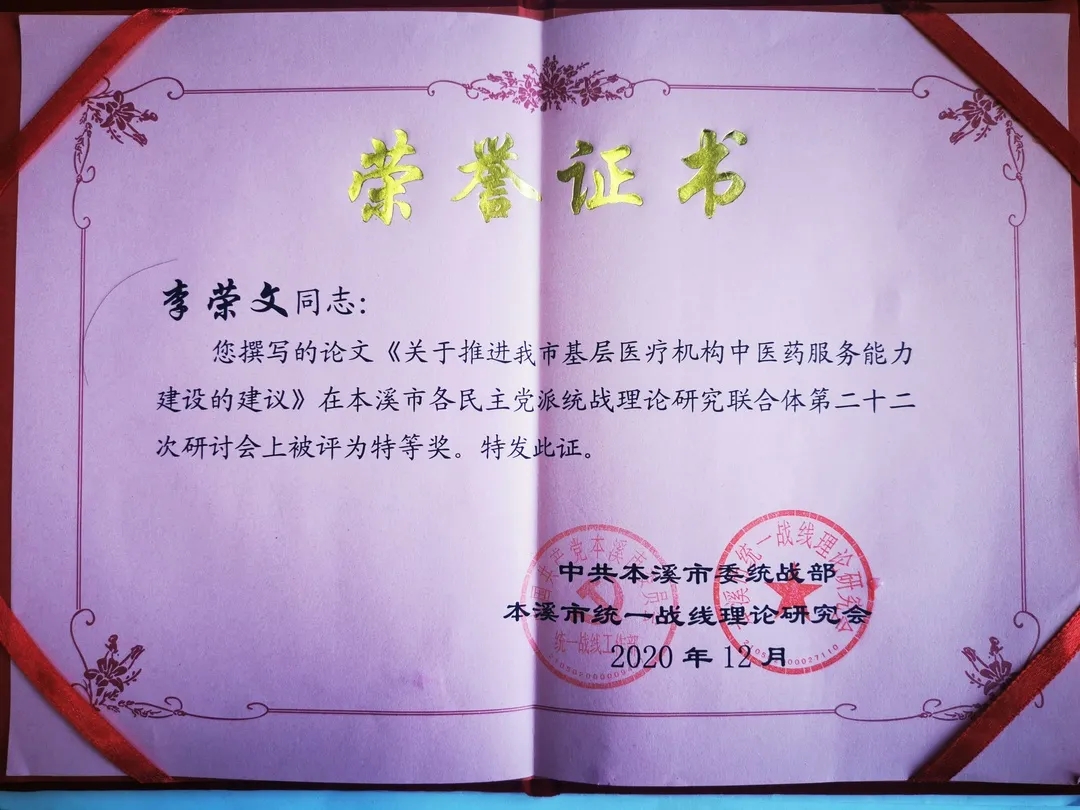 荣誉证书
李荣文同志:
您撰写的论文《关于推进我市基层医疗机构中医药服务能力
建设的建议》在本溪市各民主党派统战理论研究联合体第二十二
次研讨会上被评为特等奖。特发此证。
中共本溪市委统战部
本溪市统一战线理论研究会
2020年12月
统一战线工作部